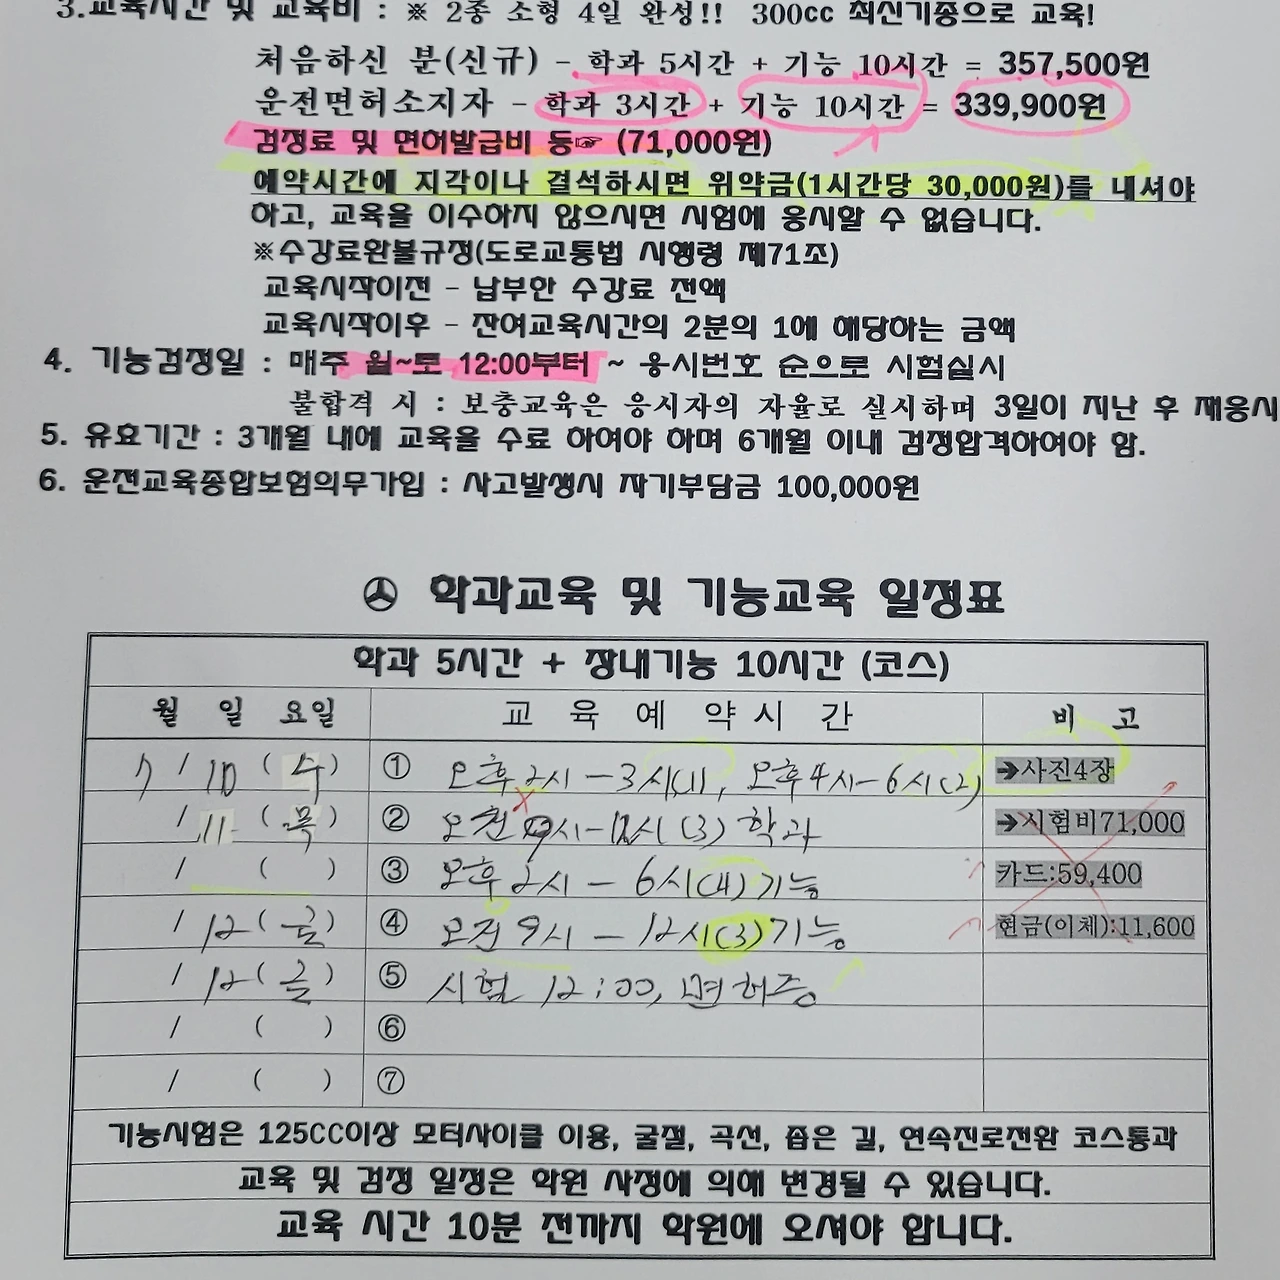 3.교육시간 및 교육비 : ※ 2종 소형 4일 완성!! 300cc 최신기종으로 교육!
처음하신 분(신규) - 학과 5시간 + 기능 10시간 = 357,500원
운전면허소지자 - 학과 3시간 + 기능 10시간 = 339,900원
검정료 및 면허발급비 등☞ (71,000원)
예약시간에 지각이나 결석하시면 위약금(1시간당 30,000원)를 내셔야
하고, 교육을 이수하지 않으시면 시험에 응시할 수 없습니다.
※수강료환불규정(도로교통법 시행령 제71조)
교육시작이전 - 납부한 수강료 전액
교육시작이후 - 잔여교육시간의 2분의 1에 해당하는 금액
4. 기능검정일 : 매주 월~토 12:00부터 ~ 응시번호 순으로 시험실시
불합격 시 : 보충교육은 응시자의 자율로 실시하며 3일이 지난 후 재응시
5. 유효기간 : 3개월 내에 교육을 수료 하여야 하며 6개월 이내 검정합격하여야 함.
6. 운전교육종합보험의무가입 : 사고발생시 자기부담금 100,000원
학과교육 및 기능교육 일정표
학과 5시간 + 장내기능 10시간 (코스)
월 일 요일 교 육 예 약 시 간 비 고
7 / 10 (수) ① 오후2시-3시(1), 오후4시-6시(2) ➔사진4장
/ 11 (목) ② 오전 9시-12시(3) 학과 ➔시험비71,000
/ ( ) ③ 오후2시 - 6시(4)기능 카드:59,400
/ 12 (금) ④ 오전 9시 - 12시(3)기능 현금(이체):11,600
/ 12 (금) ⑤ 시험 12:00, 면허증
/ ( ) ⑥
/ ( ) ⑦
기능시험은 125CC이상 모터사이클 이용, 굴절, 곡선, 좁은 길, 연속진로전환 코스통과
교육 및 검정 일정은 학원 사정에 의해 변경될 수 있습니다.
교육 시간 10분 전까지 학원에 오셔야 합니다.